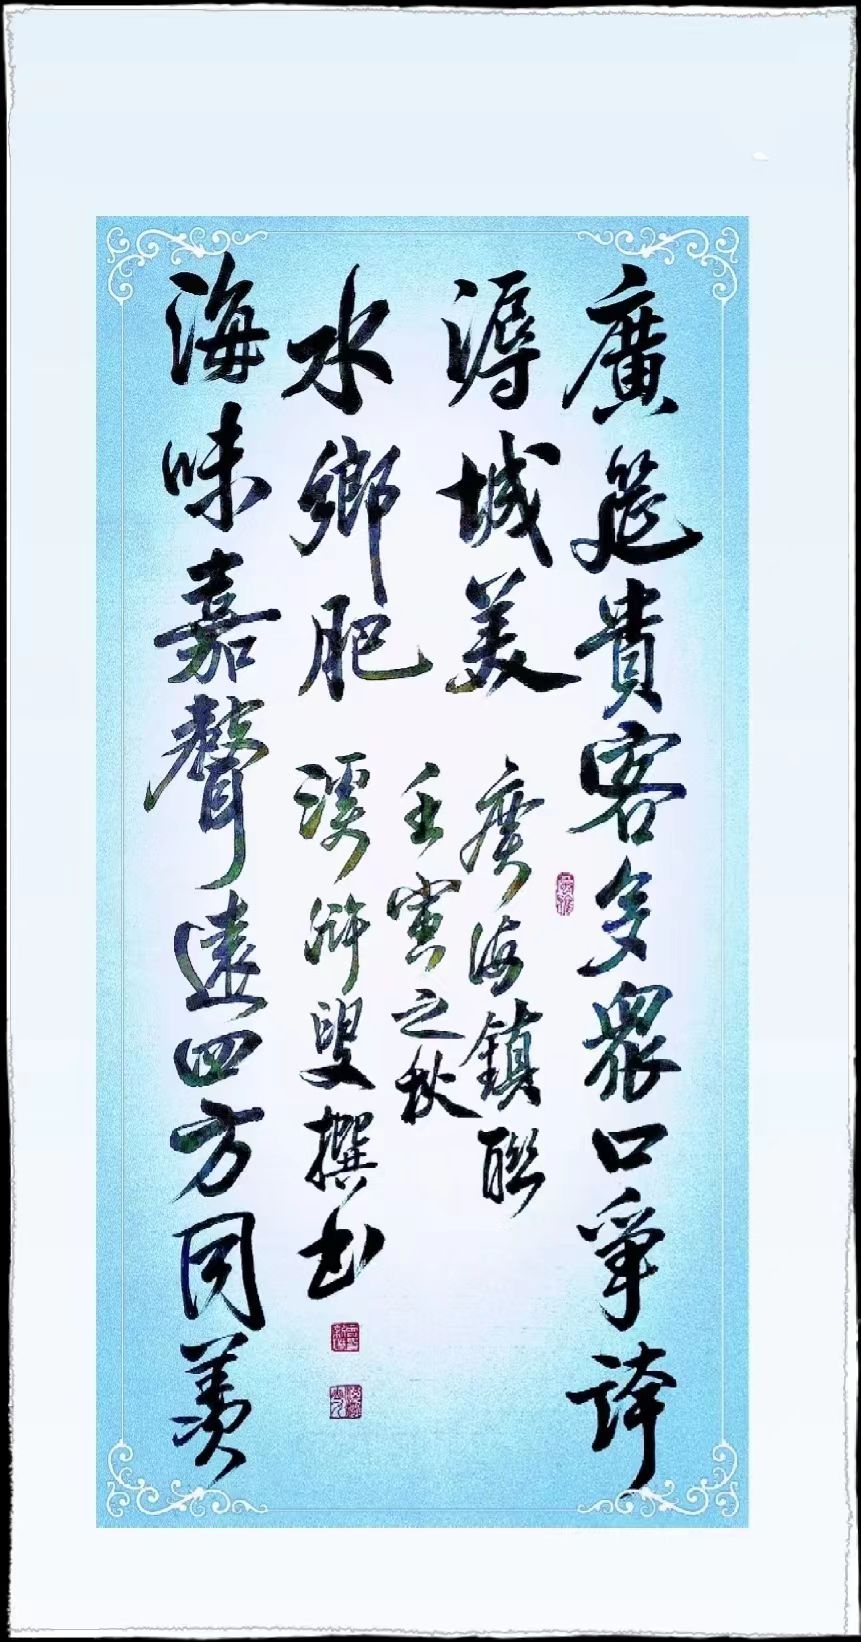 廣筵貴客多眾口爭誇
溽城美
廣海鎮聯
壬寅之秋
海味嘉聲遠四方同羨
水鄉肥
溪滸叟撰书